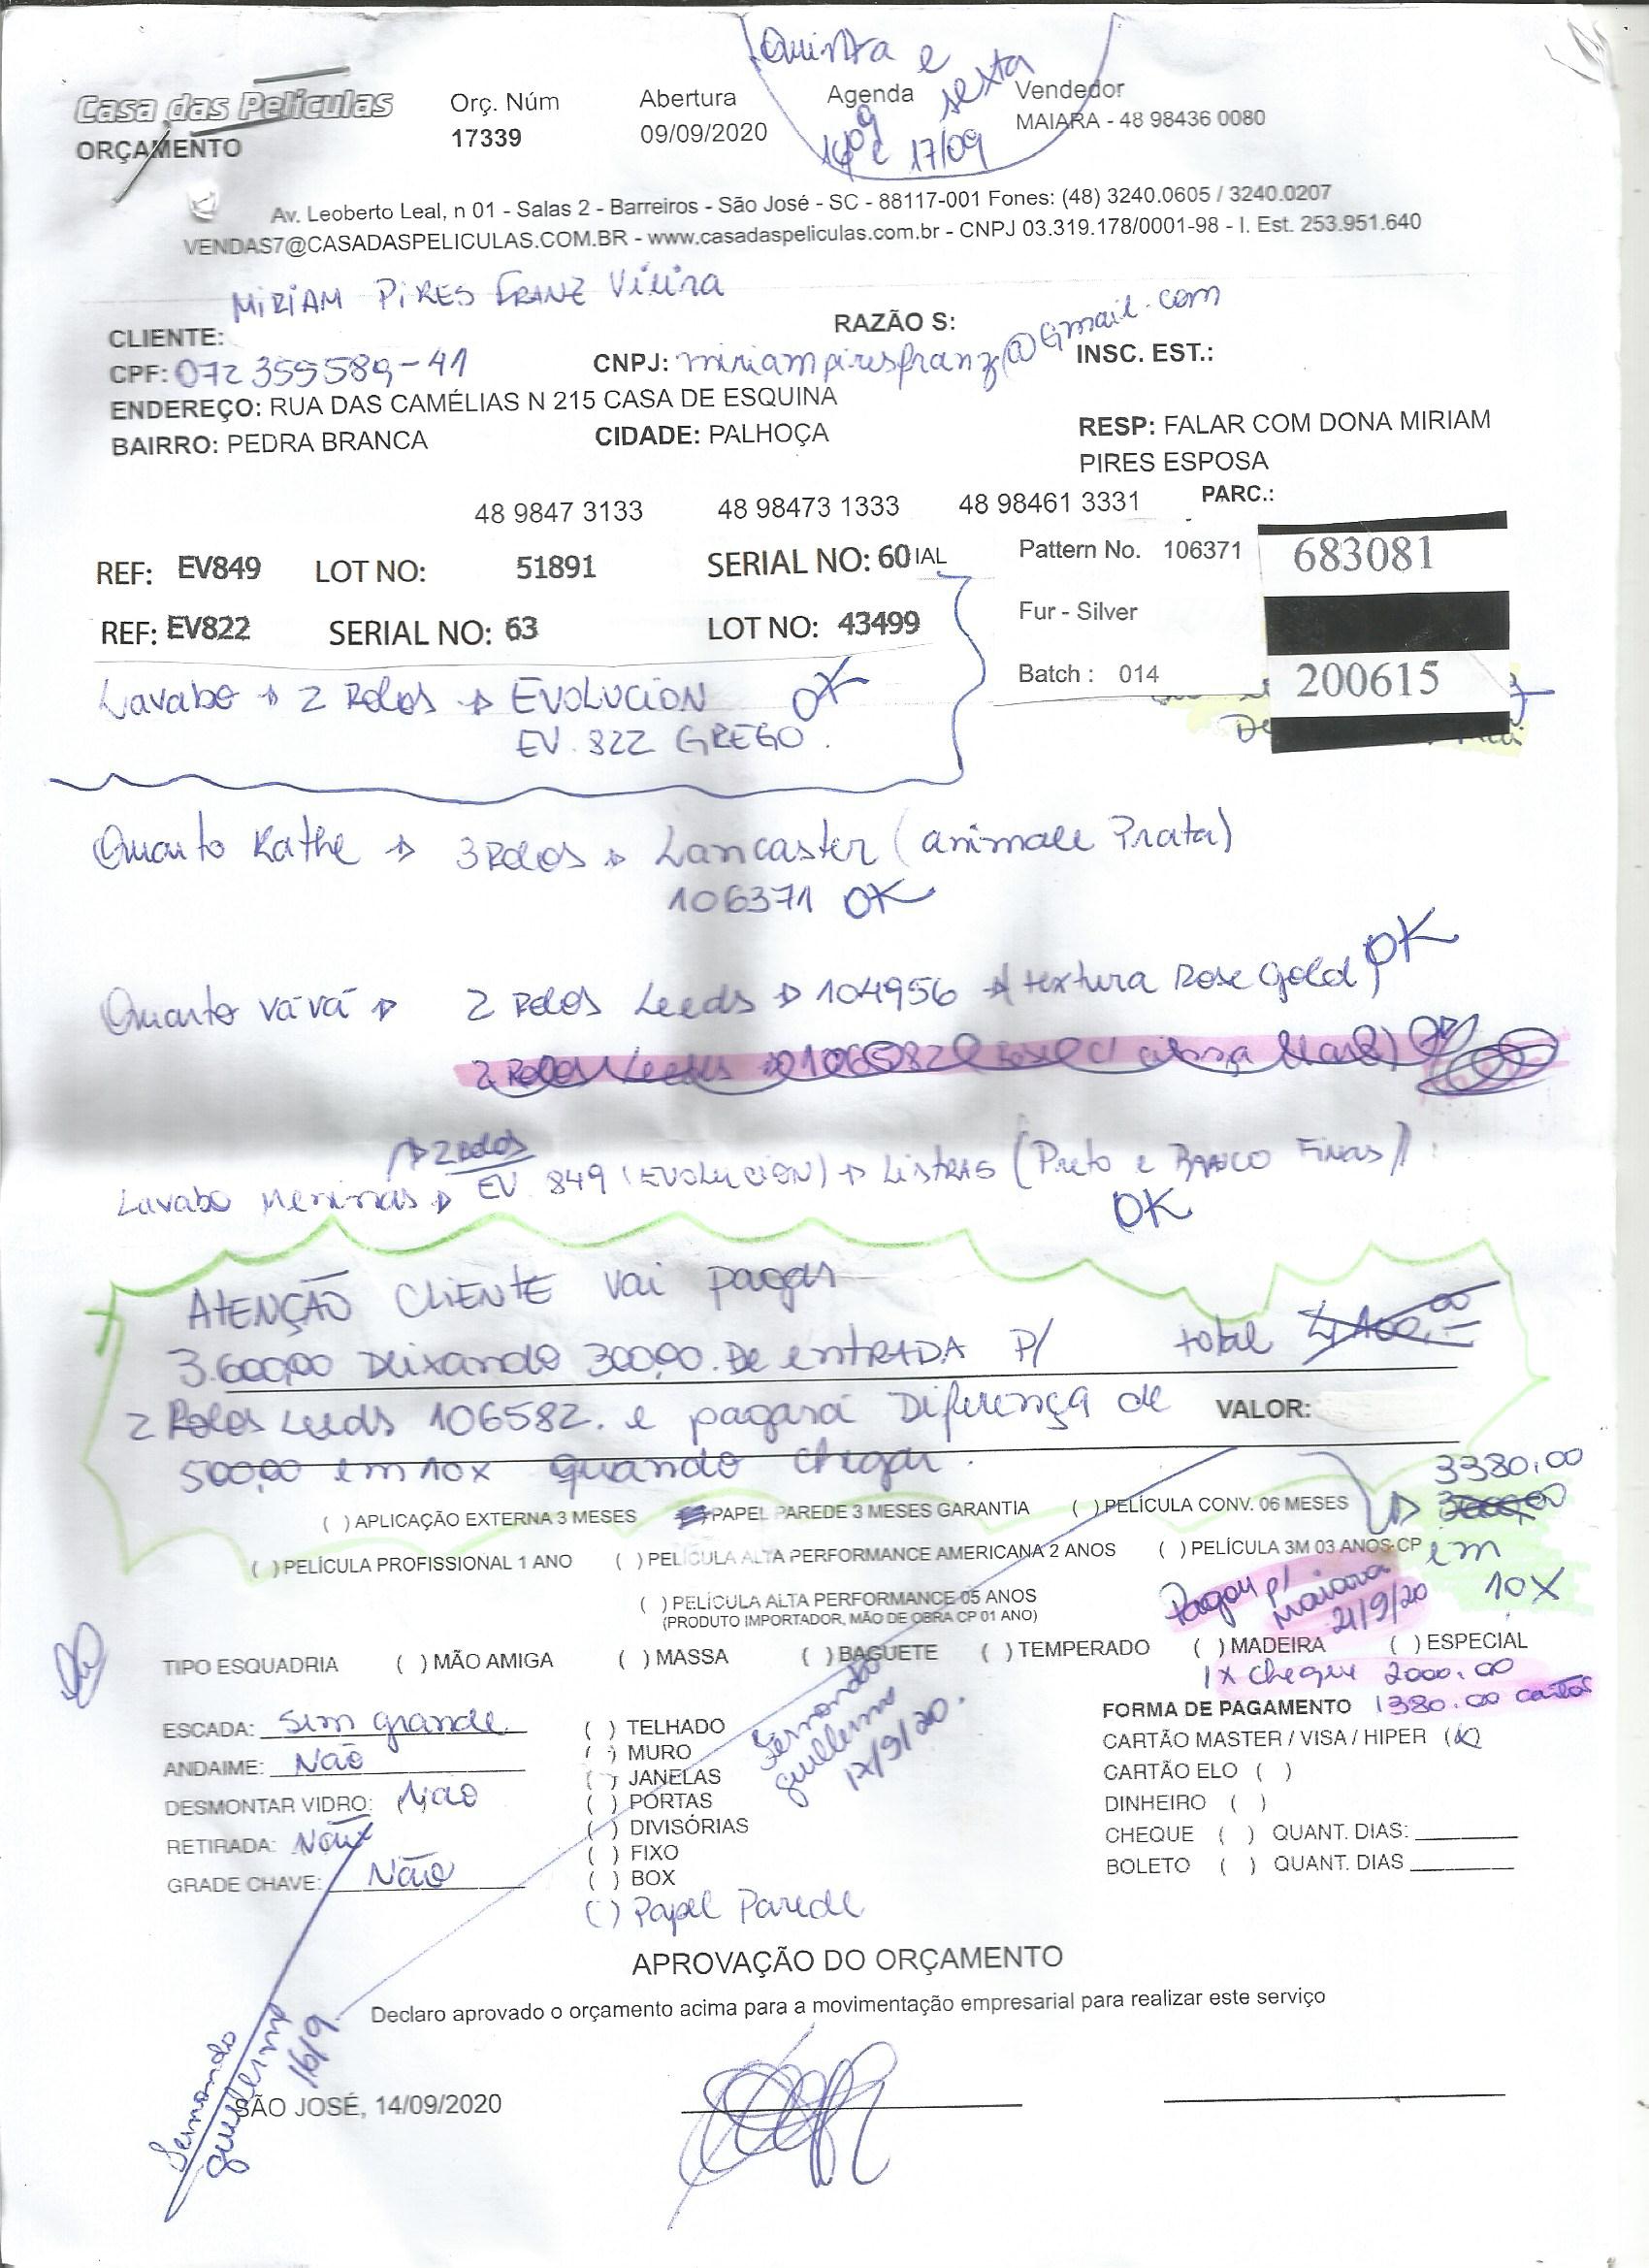 Quinta e
sexta
17/09
Casa das Películas
ORÇAMENTO
Orç. Núm
17339
Abertura
09/09/2020
Agenda
Vendedor
MAIARA - 48 98436 0080
Av. Leoberto Leal, n 01 - Salas 2 - Barreiros - São José - SC - 88117-001 Fones: (48) 3240.0605 / 3240.0207
VENDAS7@CASADASPELICULAS.COM.BR - www.casadaspeliculas.com.br - CNPJ 03.319.178/0001-98 - I. Est. 253.951.640
MIRIAM PIRES FRANZ Vieira
CLIENTE:
RAZÃO S:
CPF: 072 359589-41
CNPJ: miriampiresfranz@Gmail.com
INSC. EST.:
ENDEREÇO: RUA DAS CAMÉLIAS N 215 CASA DE ESQUINA
BAIRRO: PEDRA BRANCA
CIDADE: PALHOÇA
RESP: FALAR COM DONA MIRIAM
PIRES ESPOSA
48 9847 3133 48 98473 1333 48 98461 3331
PARC.:
REF: EV849 LOT NO: 51891 SERIAL NO: 60 IAL
Pattern No. 106371
683081
REF: EV822 SERIAL NO: 63 LOT NO: 43499
Fur - Silver
Batch : 014
200615
Lavabo → 2 Rolos → EVOLUCION OK
EV. 822 GREGO.
Quarto Kathe → 3 Rolos → Lancaster (animale Prata)
106371 OK
Quarto vává → 2 Rolos Leeds → 104956 → textura Rose Gold OK
2 Rolos Leeds → 106582
→ 2 Rolos
Lavabo Meninas → EV 849 (EVOLUCION) → Listras (Preto e BRANCO FINAS)
OK
ATENÇÃO CLIENTE vai pagar
3.600,00 Deixando 300,00. De entRADA P/ total 4.100,00
2 Rolos Leeds 106582. e pagará Diferença de VALOR:
500,00 em 10x quando chegar.
3380,00
( ) APLICAÇÃO EXTERNA 3 MESES ( ) PAPEL PAREDE 3 MESES GARANTIA ( ) PELÍCULA CONV. 06 MESES
( ) PELÍCULA PROFISSIONAL 1 ANO ( ) PELÍCULA ALTA PERFORMANCE AMERICANA 2 ANOS ( ) PELÍCULA 3M 03 ANOS CP
em
10X
( ) PELÍCULA ALTA PERFORMANCE 05 ANOS
(PRODUTO IMPORTADOR, MÃO DE OBRA CP 01 ANO)
Pagou p/
Maiara
21/9/20
TIPO ESQUADRIA ( ) MÃO AMIGA ( ) MASSA ( ) BAGUETE ( ) TEMPERADO ( ) MADEIRA ( ) ESPECIAL
1x cheque 2000.00
FORMA DE PAGAMENTO 1380.00 cartão
ESCADA: Sim grande
ANDAIME: Não
DESMONTAR VIDRO: Não
RETIRADA: Não
GRADE CHAVE: Não
( ) TELHADO
( ) MURO
( ) JANELAS
( ) PORTAS
( ) DIVISÓRIAS
( ) FIXO
( ) BOX
( ) Papel Parede
Fernando
guilherme
17/9/20.
CARTÃO MASTER / VISA / HIPER (X)
CARTÃO ELO ( )
DINHEIRO ( )
CHEQUE ( ) QUANT. DIAS:
BOLETO ( ) QUANT. DIAS
APROVAÇÃO DO ORÇAMENTO
Declaro aprovado o orçamento acima para a movimentação empresarial para realizar este serviço
Fernando
guilherme
16/9
SÃO JOSÉ, 14/09/2020